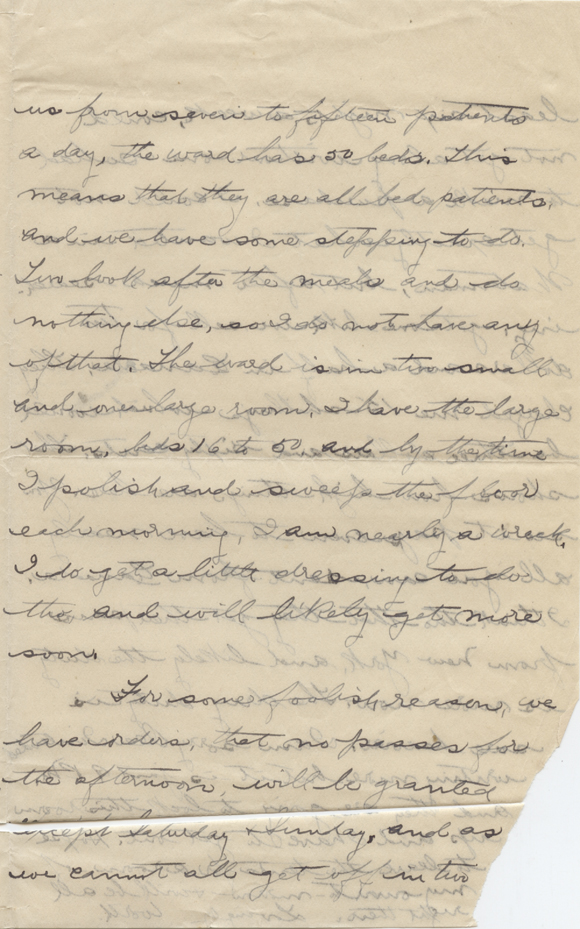 us from seven to fifteen patients
a day, the ward has 50 beds. This
means that they are all bed patients,
and we have some stepping to do.
Two look after the meals, and do
nothing else, so I do not have any
of that. The ward is in two small
and one large room, I have the large
room, beds 16 to 50, and by the time
I polish and sweep the floor
each morning, I am nearly a wreck,
I do get a little dressing to do
tho and will likely get more
soon.
For some foolish reason, we
have orders, that no passes for
the afternoon, will be granted
except Saturday & Sunday, and as
we cannot all get off in two